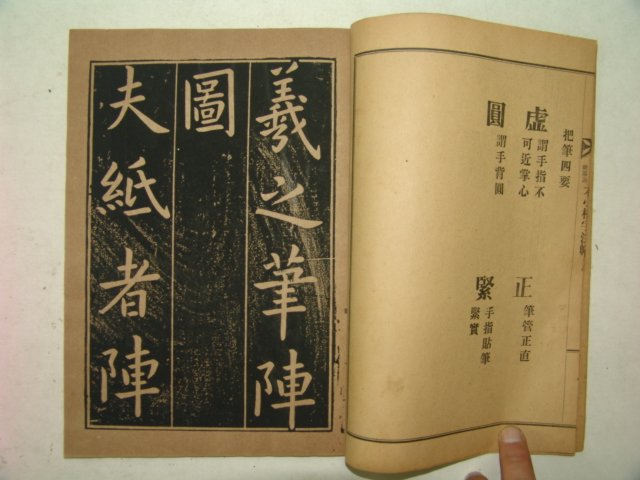 把筆四要
虛 謂手指不
可近掌心
正 筆管正直
圓 謂手背圓
緊 手指貼筆
緊實
羲之筆陣
圖
夫紙者陣